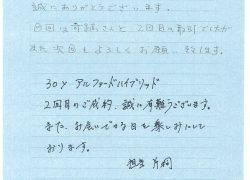 誠にありがとうございます。
今回は さんと2回目の取引でしたが
また次回もよろしくお願い致します。
30 アルファードハイブリッド
2回目のご成約、誠に有難うございます。
また、お会いできる日を楽しみにして
おります。
担当 片桐